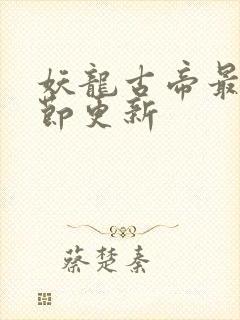 妖龍古帝最
節更新
蔡楚秦